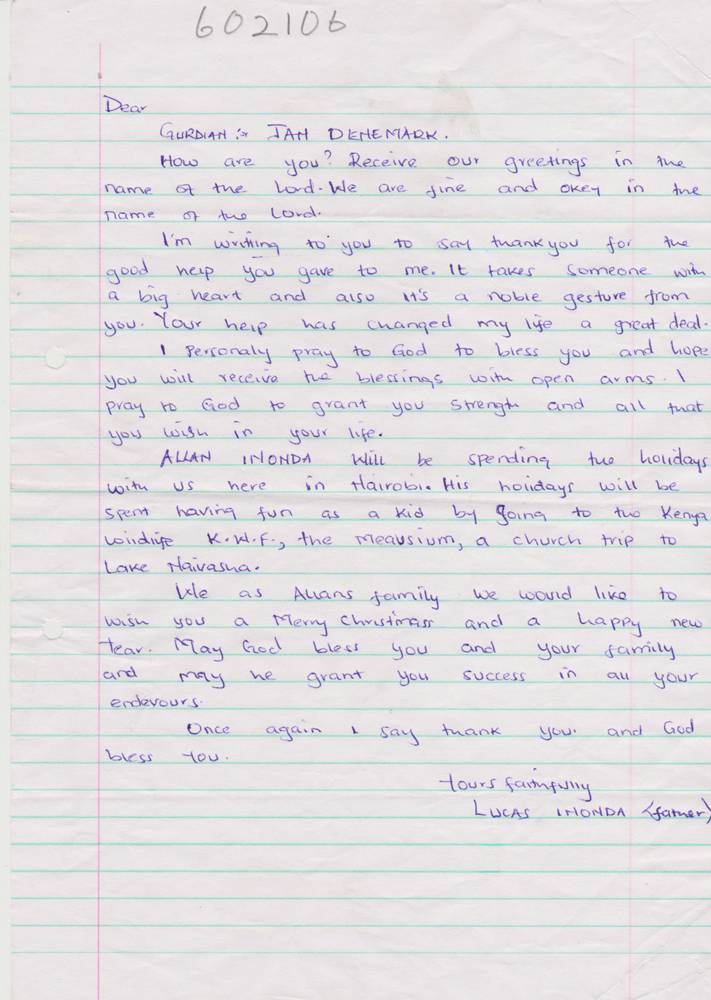 602106
Dear
GURDIAN :- JAN DENEMARK.
How are you? Receive our greetings in the
name of the Lord. We are fine and okey in the
name of the Lord.
I'm writting to you to say thankyou for the
good help you gave to me. It takes someone with
a big heart and also it's a noble gesture from
you. Your help has changed my life a great deal.
I Personaly pray to God to bless you and hope
you will receive the blessings with open arms. I
pray to God to grant you strength and all that
you wish in your life.
ALLAN INONDA will be spending the holidays
with us here in Nairobi. His holidays will be
spent having fun as a kid by going to the Kenya
wildlife K.W.F., the Meausium, a church trip to
Lake Naivasha.
We as Allans family we would like to
wish you a Merry Christmass and a happy new
Year. May God bless you and your family
and may he grant you success in all your
endevours.
Once again I say thank you. and God
bless You.
Yours faithfully
LUCAS INONDA (father)